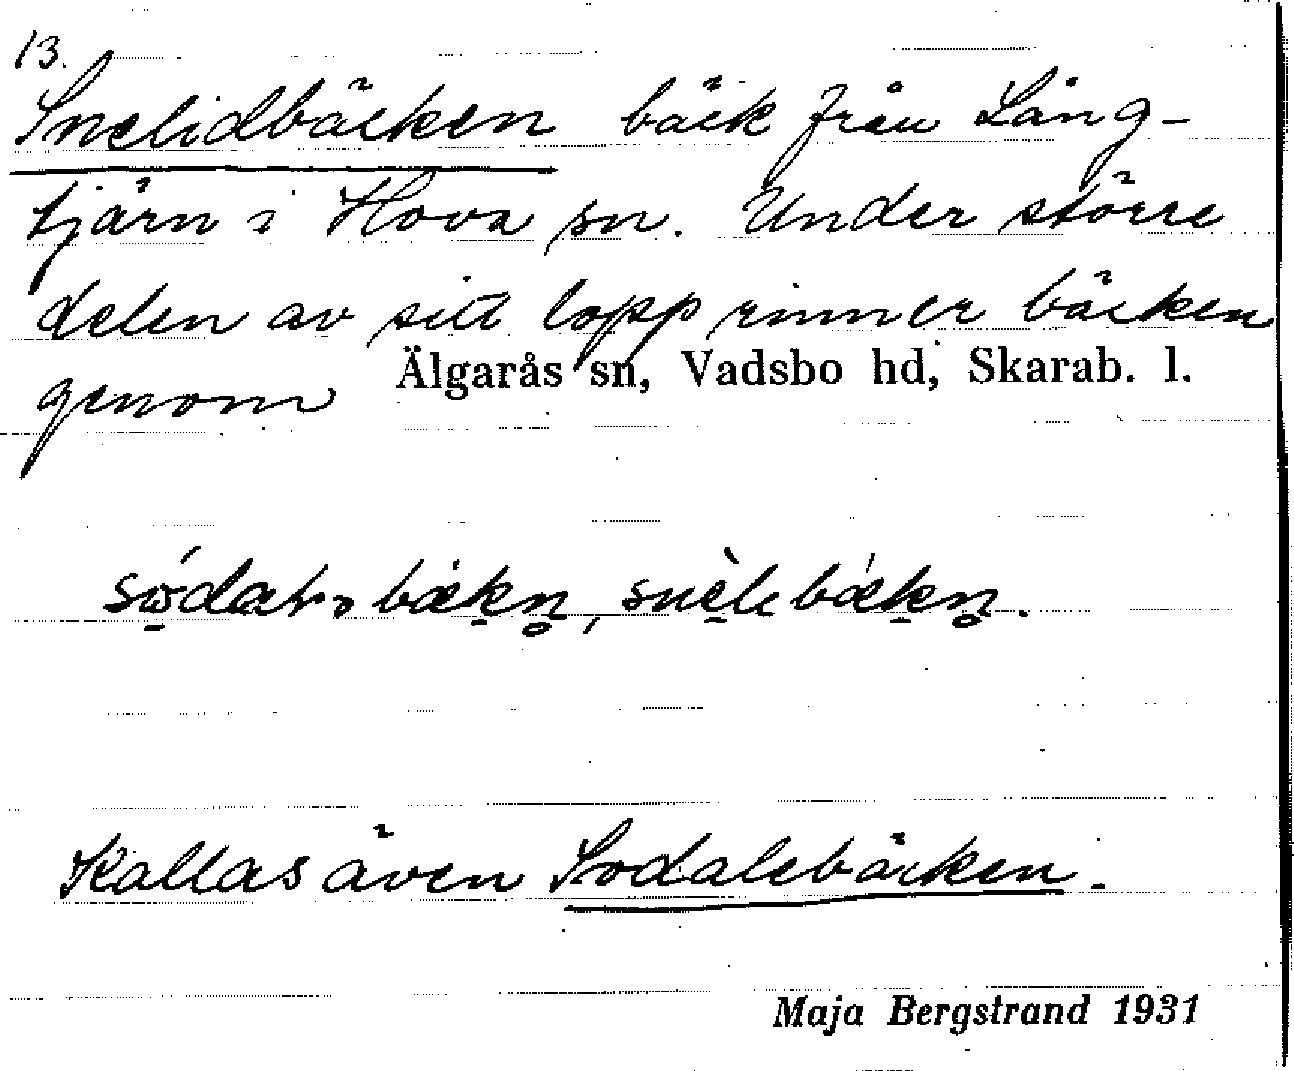 13.
Snelidbäcken bäck från Lång-
tjärn i Hova sn. Under större
delen av sitt lopp rinner bäcken
genom
Älgarås sn, Vadsbo hd, Skarab. l.
Kallas även Sodalebäcken.
Maja Bergstrand 1931